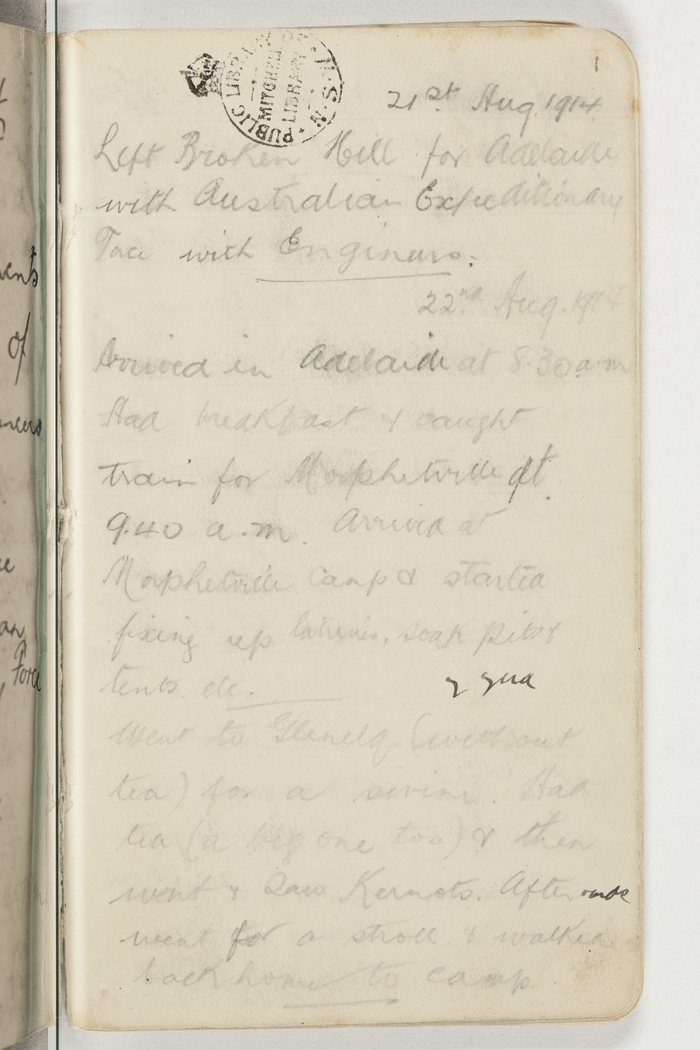 1
PUBLIC LIBRARY OF N.S.W.
MITCHELL
LIBRARY
21st Aug 1914
Left Broken Hill for Adelaide
with Australian Expeditionary
Force with Engineers.
22nd Aug. 1914
Arrived in Adelaide at 8.30 a.m
Had breakfast & caught
train for Morphetville at
9.40 a.m. Arrived at
Morphetville Camp & started
fixing up latrines, soak pits &
tents. etc.
Went to Glenelg (without
tea) for a swim. Had
tea (a big one too) & then
went & saw Kernots. Afterwards
went for a stroll & walked
back home to camp.
ents
of
neers
an
Force